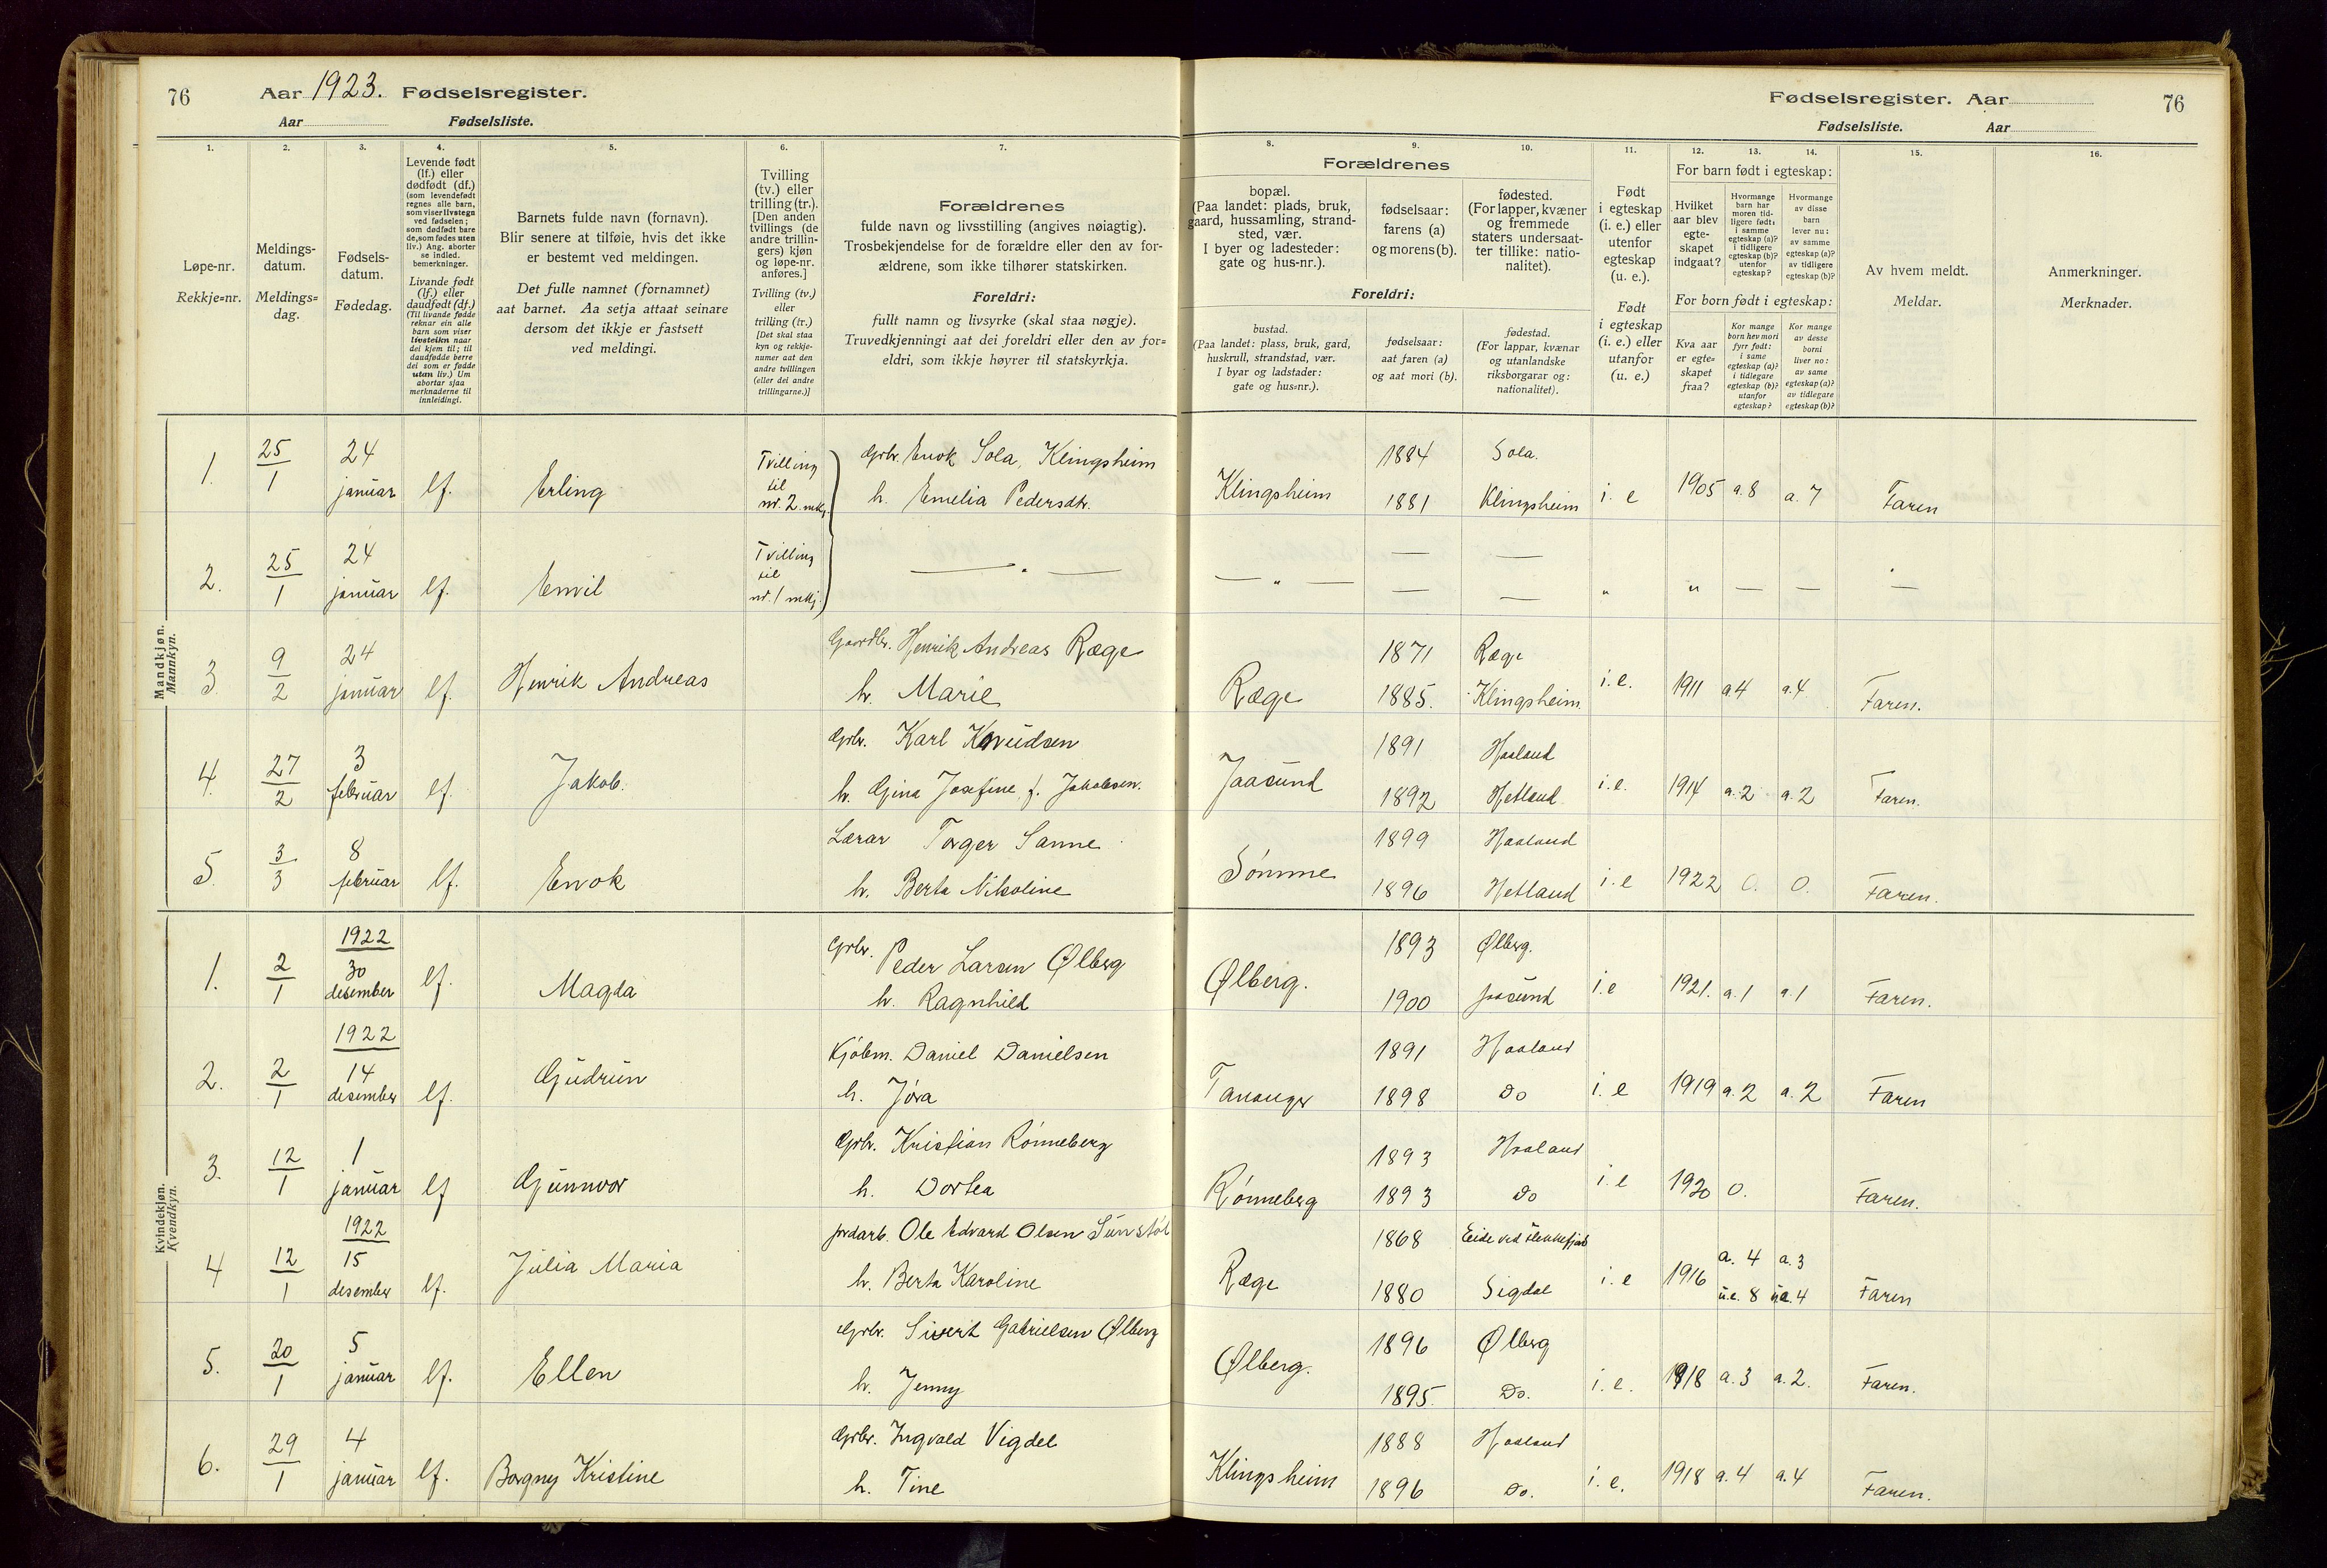 76 Aar 1923. Fødselsregister.
Aar Fødselsliste.
Fødselsregister. Aar 76
Fødselsliste. Aar
1. 2. 3. 4. 5. 6. 7. 8. 9. 10. 11. 12. 13. 14. 15. 16.
Løpe-nr.
Rekkje=nr.
Meldings-
datum.
Meldings=
dag.
Fødsels-
datum.
Fødedag.
Levende født
(lf.) eller
dødfødt (df.)
(som levendefødt
regnes alle barn,
som viser livstegn
ved fødselen;
som dødfødt bare
de, som fødes uten
liv.) Ang. aborter
se indled.
bemerkninger.
Livande født
(lf.) eller
daudfødt (df.)
(Til livande fødde
reknar ein alle
barn som viser
livsteikn naar
dei kjem til; til
daudfødde berre
dei som er fødde
utan liv.) Um
abortar sjaa
merknaderne til
innleidingi.
Barnets fulde navn (fornavn).
Blir senere at tilføie, hvis det ikke
er bestemt ved meldingen.
Det fulle namnet (fornamnet)
aat barnet. Aa setja attaat seinare
dersom det ikkje er fastsett
ved meldingi.
Tvilling
(tv.) eller
trilling (tr.).
[Den anden
tvillings (de
andre trillin-
gers) kjøn
og løpe-nr.
anføres.]
Tvilling (tv.)
eller
trilling (tr.)
[Det skal staa
kyn og rekkje-
numer aat den
andre tvillingen
(eller dei andre
trillingarne.)]
Forældrenes
fulde navn og livsstilling (angives nøiagtig).
Trosbekjendelse for de forældre eller den av for-
ældrene, som ikke tilhører statskirken.
Foreldri:
fullt namn og livsyrke (skal staa nøgje).
Truvedkjenningi aat dei foreldri eller den av for=
eldri, som ikkje høyrer til statskyrkja.
Forældrenes
bopæl.
(Paa landet: plads, bruk,
gaard, hussamling, strand-
sted, vær.
I byer og ladesteder:
gate og hus-nr.).
fødselsaar:
farens (a)
og morens (b).
fødested.
(For lapper, kvæner
og fremmede
staters undersaat-
ter tillike: natio-
nalitet).
Foreldri:
bustad.
(Paa landet: plass, bruk, gard,
huskrull, strandstad, vær.
I byar og ladstader:
gate og hus=nr.).
fødselsaar:
aat faren (a)
og aat mori (b).
fødestad.
(For lappar, kvænar
og utanlandske
riksborgarar og:
nationalitet).
Født
i egteskap
(i. e.) eller
utenfor
egteskap
(u. e.).
Født
i egteskap
(i. e.) eller
utanfor
(u. e.)
For barn født i egteskap:
Hvilket
aar blev
egte-
skapet
indgaat?
Hvormange
barn har
moren tid-
ligere født:
i samme
egteskap (a)?
i tidligere
egteskap (b)?
utenfor
egteskap?
Hvormange
av disse
barn
lever nu:
av samme
egteskap (a)?
av tidligere
egteskap (b)?
For born født i egteskap:
Kva aar
er egte=
skapet
fraa?
Kor mange
born hev mori
fyrr født:
i same
egteskap (a)?
i tidlegare
egteskap (b)?
utanfor
egteskap?
Kor mange
av desse
borni
liver no:
av same
egteskap (a)?
av tidlegare
egteskap (b)?
Av hvem meldt.
Meldar.
Anmerkninger.
Merknader.
Mandkjøn.
Mannkyn.
1. 25/1 24 januar lf. Erling Tvilling til nr. 2. mkj. Grbr. Enok Sola, Klingsheim
h. Emelia Pedersdtr. Klingsheim 1884 Sola.
1881 Klingsheim i. e 1905 a. 8 a. 7 Faren
2. 25/1 24 januar lf. Emil Tvilling til nr. 1 mkj. — " — — " — — — " " — — —
3. 9/2 24 januar lf. Henrik Andreas Gardbr. Henrik Andreas Ræge
h. Marie Ræge 1871 Ræge
1885. Klingsheim i. e. 1911 a. 4 a. 4 Faren.
4. 27/2 3 februar lf. Jakob. Grbr. Karl Knudsen
h. Gina Josefine f. Jakobsen. Jaasund 1891 Haaland
1892 Hetland i. e. 1914 a. 2 a. 2 Faren.
5. 3/3 8 februar lf. Enok Lærar Torger Sanne
h. Berta Nikoline Sømme 1899 Haaland
1896 Hetland i. e 1922 0. 0. Faren.
Kvindekjøn.
Kvendkyn.
1. 2/1 1922 30 desember lf. Magda Grbr. Peder Larsen Ølberg
h. Ragnhild Ølberg. 1893 Ølberg.
1900 Jaasund i. e 1921. a. 1 a. 1 Faren.
2. 2/1 1922 14 desember lf. Gudrun Kjøbm. Daniel Danielsen
h. Jóra Tananger 1891 Haaland
1898 Do i. e 1919 a. 2 a. 2 Faren
3. 12/1 1 januar lf Gunnvor Grbr. Kristian Rønneberg
h. Dortea Rønneberg 1893 Haaland
1893 Do i. e 1920 0. Faren.
4 12/1 1922 15 desember lf. Julia Maria jordarb. Ole Edvard Olsen Sunstøl
h. Berta Karoline Ræge 1868 Eide ved Flekkefjord
1880 Sigdal i. e 1916 a. 4 a. 3
u.e. 8 u.e. 4 Faren
5. 20/1 5 januar lf. Ellen Grbr. Sivert Gabrielsen Ølberg
h. Jenny Ølberg. 1896 Ølberg
1895. Do. i. e. 1918 a. 3 a. 2. Faren.
6. 29/1 4 januar lf. Borgny Kristine Grbr. Ingvald Vigdel
h. Tine Klingsheim 1888 Haaland
1896 Do. i. e. 1918 a. 4 a. 4 Faren.